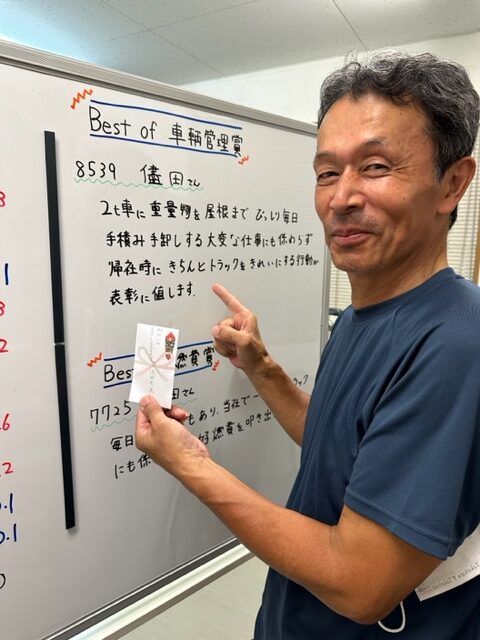 Best of 車輌管理賞
8539 儘田さん
2t車に重量物を屋根までびっしり毎日
手積み手卸しする大変な仕事にも係わらず
帰社時にきちんとトラックをきれいにする行動が
表彰に値します.
Best 燃費賞
7725 田さん
もあり、当社で一 ラック
毎日 好燃費を叩き出
にも係
8
1
8
2
6
2
.1
0.1
0